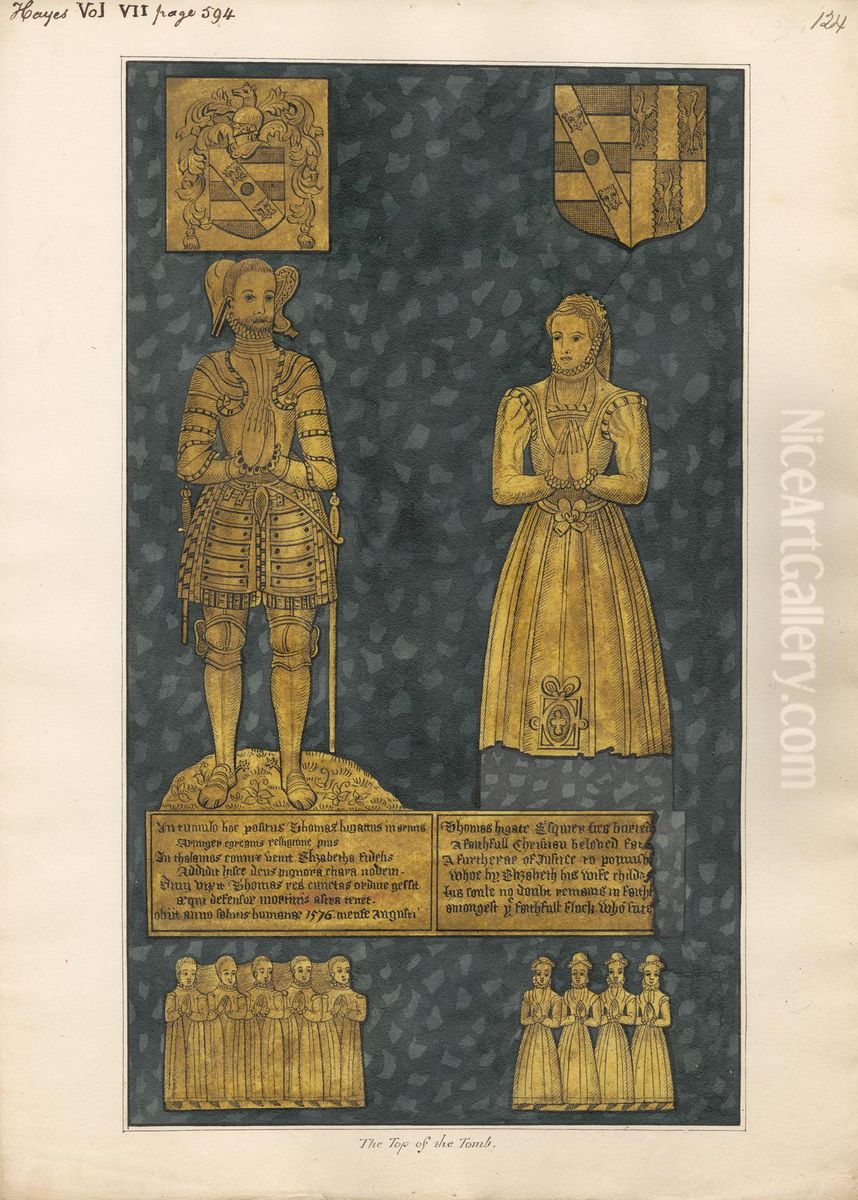 Hayes Vol VII page 594
124
In tumulo hoc positus Thomas higattus in armis
Armiger egregius religione pius
In thalamos coniux venit Elizabetha fidelis
Addidit hisce deus pignora chara novem
Dum vixit Thomas res cunctas ordine gessit
æqui defensor mortuus astra tenet.
obiit anno salutis humanæ 1576. mense Augusti
Thomas higate Esquier lies buried
A faithfull Christian beloved
A furtherer of Justice to
whoe by Elizabeth his wife
his soule no doubt remains in
amongest yͤ faithfull flock who
The Top of the Tomb.
NiceArtGallery.com